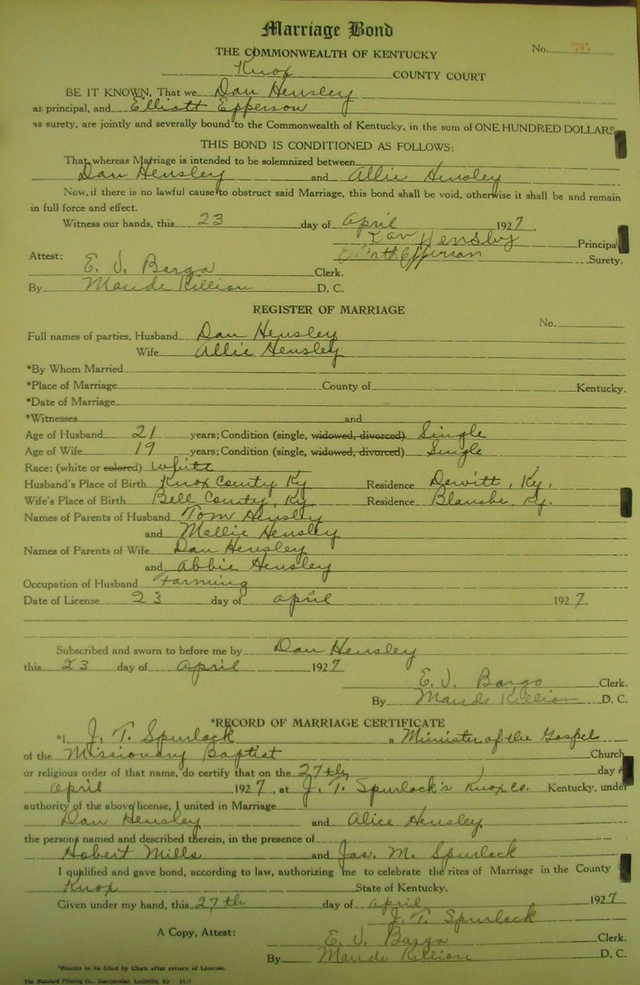 Marriage Bond
No. 76
THE COMMONWEALTH OF KENTUCKY
Knox COUNTY COURT
BE IT KNOWN, That we Dan Hensley
as principal, and Elliott Epperson
as surety, are jointly and severally bound to the Commonwealth of Kentucky, in the sum of ONE HUNDRED DOLLARS.
THIS BOND IS CONDITIONED AS FOLLOWS:
That whereas Marriage is intended to be solemnized between
Dan Hensley and Allie Hensley
Now, if there is no lawful cause to obstruct said Marriage, this bond shall be void, otherwise it shall be and remain
in full force and effect.
Witness our hands, this 23 day of April 1927
Dan Hensley Principal
Epperson Surety.
Attest:
E. V. Bargo Clerk.
By Maude Killion D. C.
REGISTER OF MARRIAGE
No.
Full names of parties, Husband Dan Hensley
Wife Allie Hensley
*By Whom Married
*Place of Marriage County of Kentucky.
*Date of Marriage
*Witnesses and
Age of Husband 21 years; Condition (single, widowed, divorced) Single
Age of Wife 19 years; Condition (single, widowed, divorced) Single
Race: (white or colored) White
Husband's Place of Birth Knox County Ky Residence Dewitt, Ky.
Wife's Place of Birth Bell County, Ky. Residence Blanche, Ky.
Names of Parents of Husband Tom Hensley
and Mollie Hensley
Names of Parents of Wife Dan Hensley
and Abbie Hensley
Occupation of Husband Farming
Date of License 23 day of April 1927.
Subscribed and sworn to before me by Dan Hensley
this 23 day of April 1927
E. V. Bargo Clerk.
By Maude Killion D. C.
*RECORD OF MARRIAGE CERTIFICATE
*I, J. T. Spurlock a Minister of the Gospel
of the Missionary Baptist Church
or religious order of that name, do certify that on the 27th day
April 1927, at J. T. Spurlock's Knox Co. Kentucky, under
authority of the above license, I united in Marriage
Dan Hensley and Alice Hensley
the persons named and described therein, in the presence of
Hobert Mills and Jas. M. Spurlock
I qualified and gave bond, according to law, authorizing me to celebrate the rites of Marriage in the County
Knox State of Kentucky.
Given under my hand, this 27th day of April 1927
J. T. Spurlock
A Copy, Attest: E. V. Bargo Clerk.
By Maude Killion D. C.
*Blanks to be filled by Clerk after return of License.
The Standard Printing Co., Incorporated, Louisville, KY.